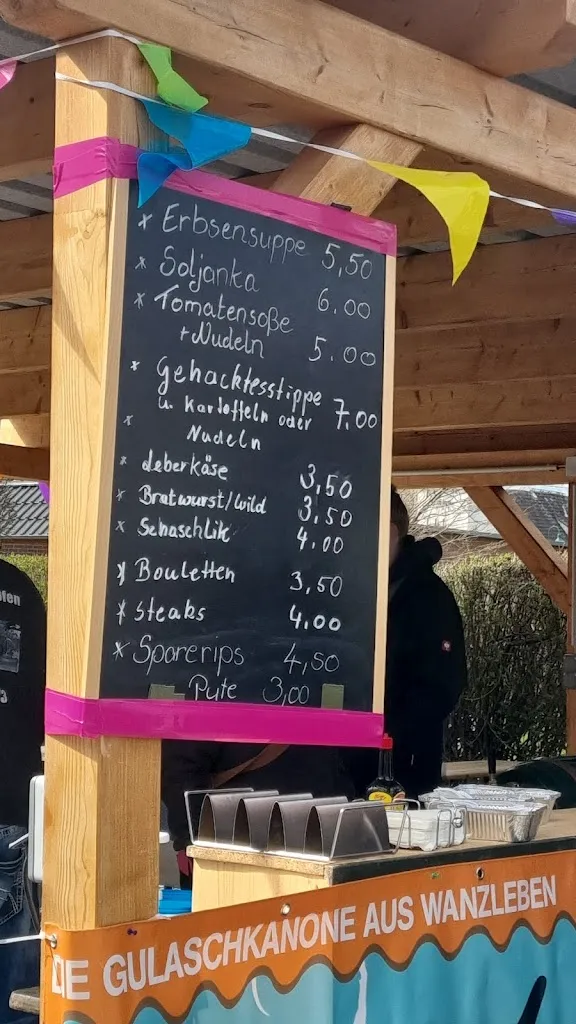 * Erbsensuppe 5,50
* Soljanka 6.00
* Tomatensoße
+Nudeln 5.00
* Gehacktesstippe
u. Kartoffeln oder 7.00
* Nudeln
* Leberkäse 3,50
* Bratwurst/wild 3.50
* Schaschlik 4.00
* Bouletten 3,50
* Steaks 4.00
* Sparerips 4,50
Pute 3,00
DIE GULASCHKANONE AUS WANZLEBEN